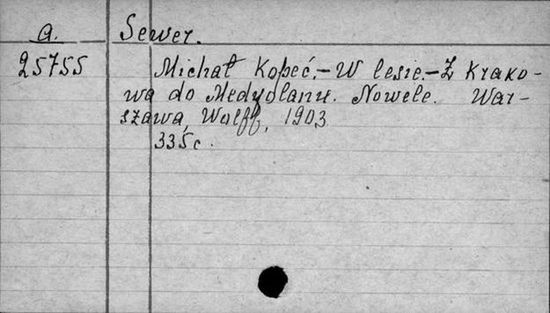 a. Sewer.
25755 Michał Kopeć.–W lesie.–Z Krako-
wa do Medyolanu. Nowele. War-
szawa, Wolff, 1903
335 c.